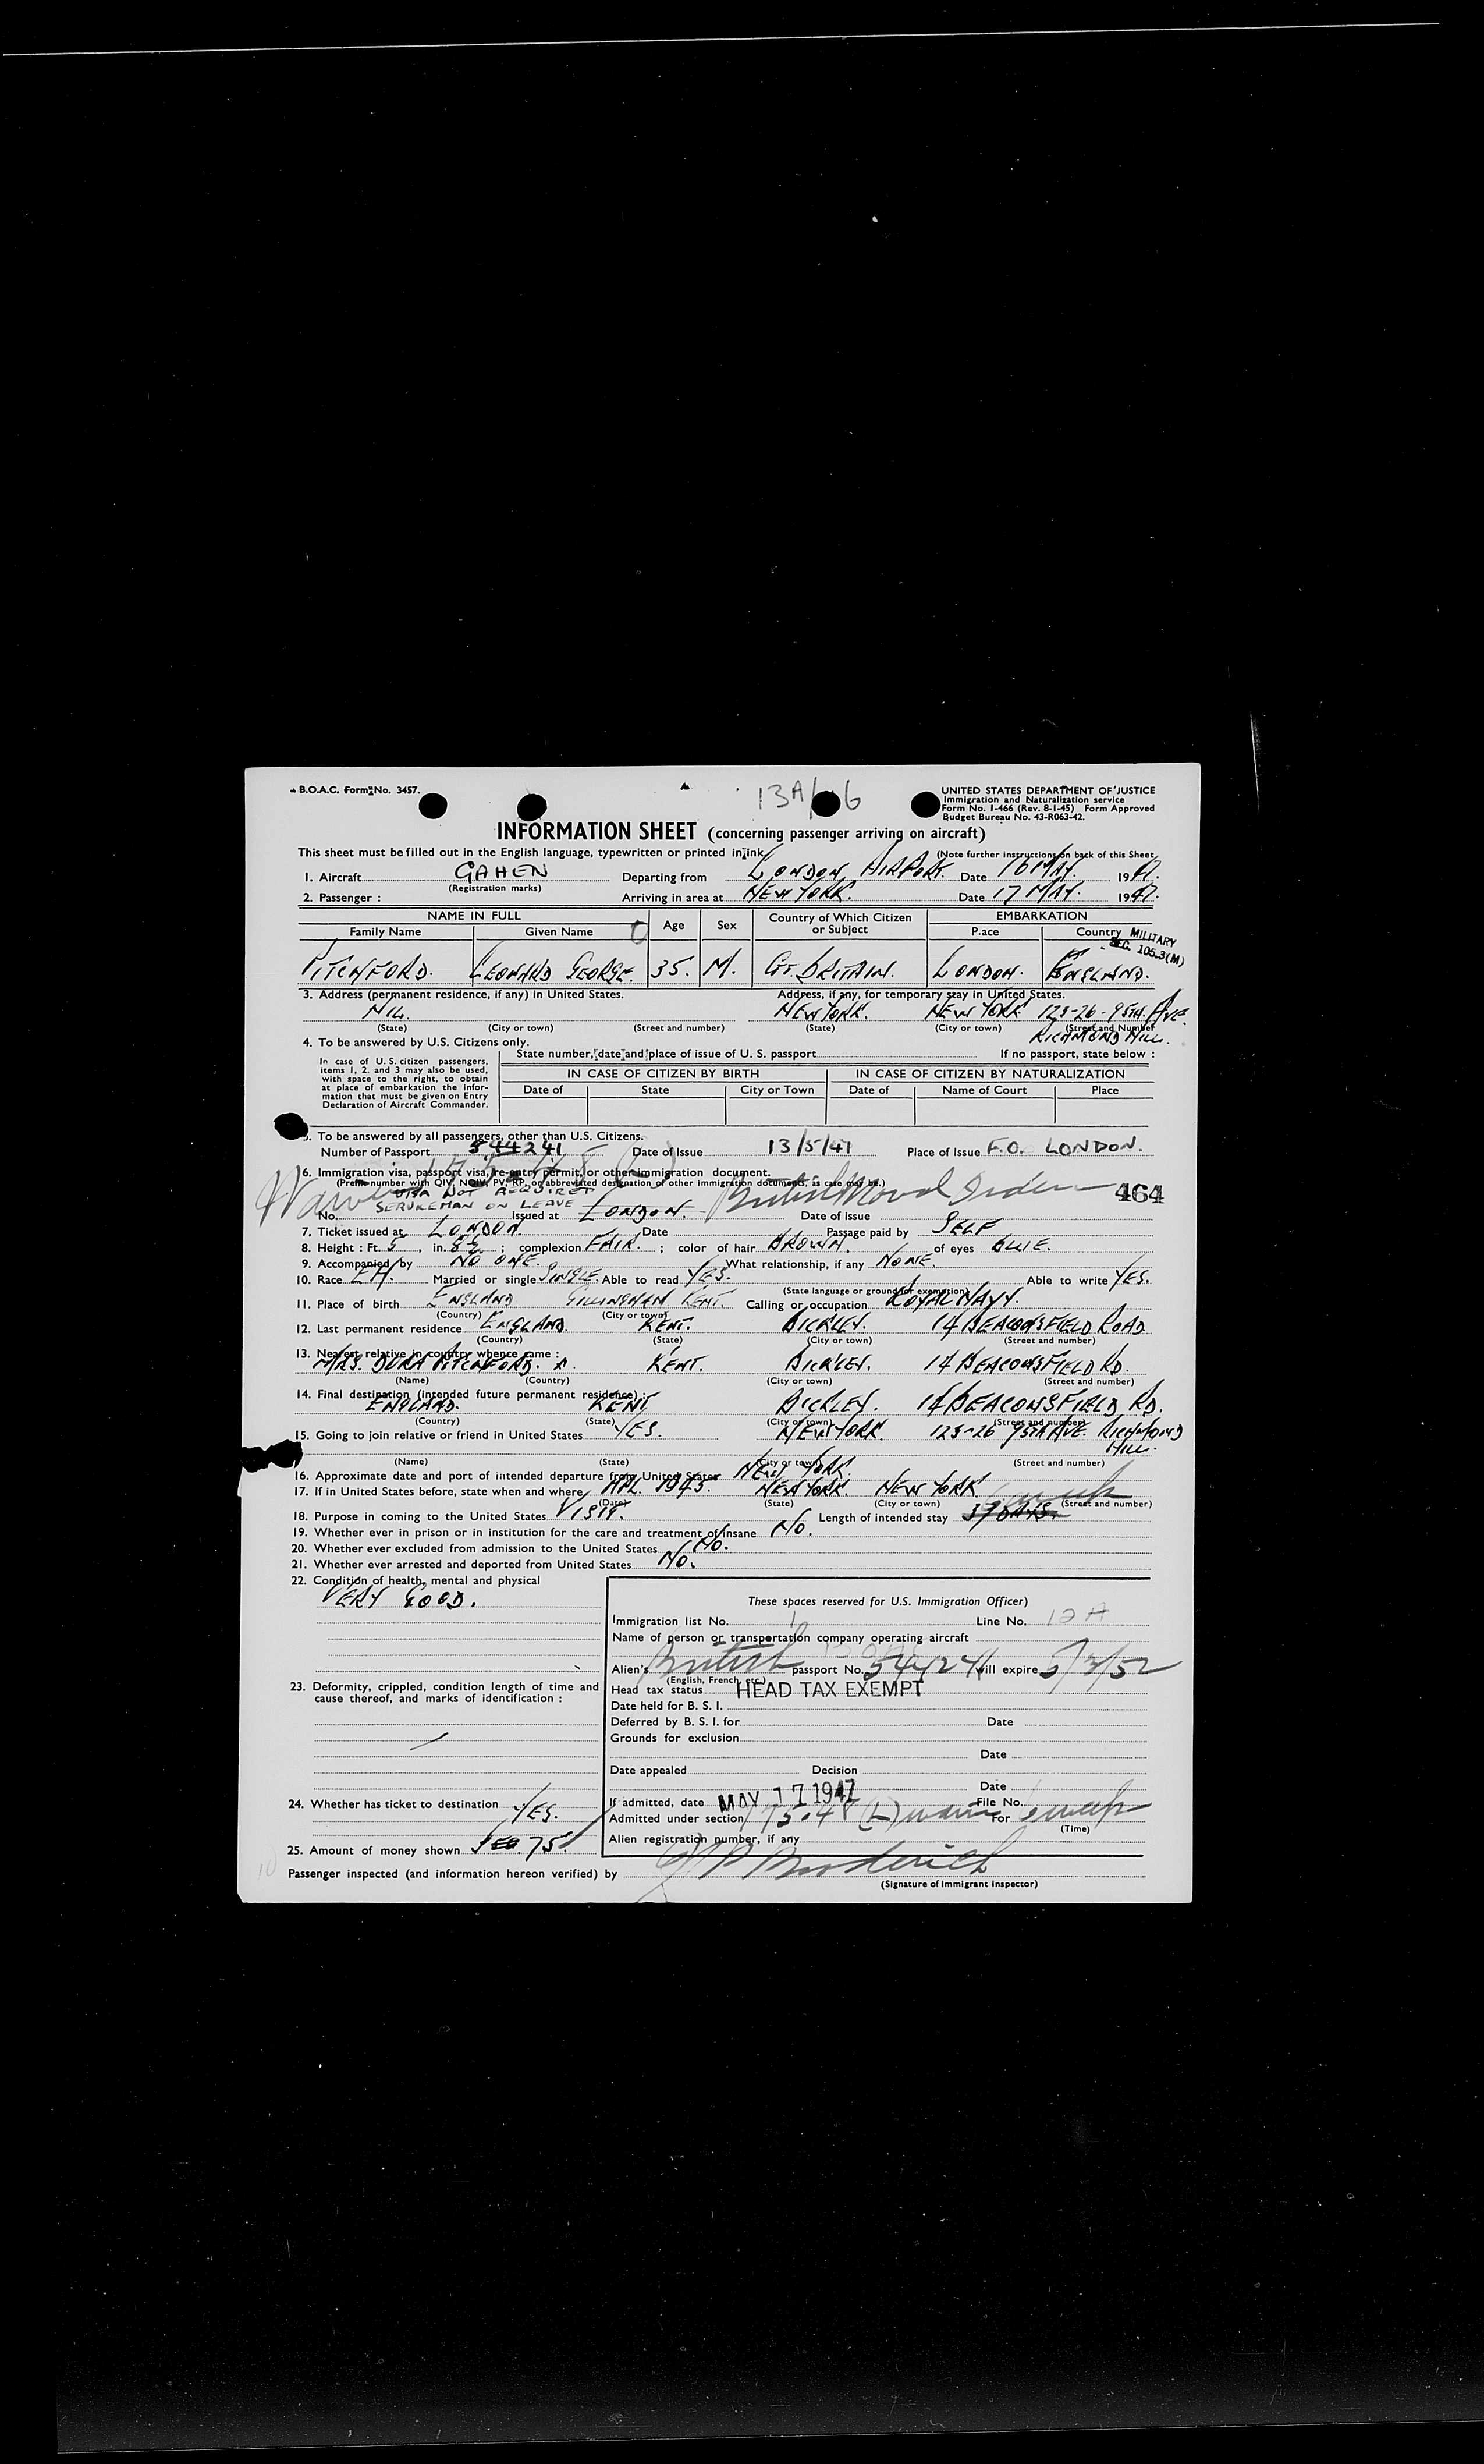 B.O.A.C. Form No. 3457.
13A/ 6
UNITED STATES DEPARTMENT OF JUSTICE
Immigration and Naturalization service
Form No. I-466 (Rev. 8-1-45) Form Approved
Budget Bureau No. 43-R063-42.
INFORMATION SHEET (concerning passenger arriving on aircraft)
This sheet must be filled out in the English language, typewritten or printed in ink.
(Note further instructions on back of this Sheet
1. Aircraft GAHEN Departing from LONDON AIRPORT. Date 16 MAY. 1947.
(Registration marks)
2. Passenger : Arriving in area at NEW YORK. Date 17 MAY. 1947.
NAME IN FULL Age Sex Country of Which Citizen or Subject EMBARKATION
Family Name Given Name Place Country
MILITARY
SEC. 105.3(M)
PITCHFORD. LEONARD GEORGE. 35. M. GT. BRITAIN. LONDON. ENGLAND.
3. Address (permanent residence, if any) in United States. Address, if any, for temporary stay in United States.
NIL. NEW YORK. NEW YORK 123-26-95TH. AVE.
(State) (City or town) (Street and number) (State) (City or town) (Street and Number
RICHMOND HILL.
4. To be answered by U.S. Citizens only.
In case of U.S. citizen passengers, items 1, 2, and 3 may also be used, with space to the right, to obtain at place of embarkation the information that must be given on Entry Declaration of Aircraft Commander.
State number, date and place of issue of U. S. passport If no passport, state below :
IN CASE OF CITIZEN BY BIRTH IN CASE OF CITIZEN BY NATURALIZATION
Date of State City or Town Date of Name of Court Place
5. To be answered by all passengers, other than U.S. Citizens.
Number of Passport 544241 Date of Issue 13/5/47 Place of Issue F.O. LONDON.
6. Immigration visa, passport visa, re-entry permit, or other immigration document.
(Prefix number with QIV, NQIV, PV, RP, or abbreviated designation of other immigration documents, as case may be.)
175.48 (L)
VISA NOT REQUIRED
SERVICEMAN ON LEAVE
British Naval Orders
464
No. Issued at LONDON. Date of issue
7. Ticket issued at LONDON. Date Passage paid by SELF
8. Height : Ft. 5, in. 8½ ; complexion FAIR. ; color of hair BROWN. of eyes BLUE.
9. Accompanied by NO ONE. What relationship, if any NONE.
10. Race EN. Married or single SINGLE. Able to read YES. Able to write YES.
(State language or ground for exemption)
11. Place of birth ENGLAND GILLINGHAM KENT. Calling or occupation ROYAL NAVY.
(Country) (City or town)
12. Last permanent residence ENGLAND. KENT. BICKLEY. 14 BEACONSFIELD ROAD
(Country) (State) (City or town) (Street and number)
13. Nearest relative in country whence came :
MRS. DORA PITCHFORD. KENT. BICKLEY. 14 BEACONSFIELD RD.
(Name) (Country) (City or town) (Street and number)
14. Final destination (intended future permanent residence) :
ENGLAND. KENT BICKLEY. 14 BEACONSFIELD RD.
(Country) (State) (City or town) (Street and number)
15. Going to join relative or friend in United States YES. NEW YORK. 123-26 95TH AVE. RICHMOND HILL.
(Name) (State) (City or town) (Street and number)
16. Approximate date and port of intended departure from United States NEW YORK.
17. If in United States before, state when and where APL. 1945. NEW YORK. NEW YORK
(Date) (State) (City or town) (Street and number)
18. Purpose in coming to the United States VISIT. Length of intended stay
19. Whether ever in prison or in institution for the care and treatment of insane NO.
20. Whether ever excluded from admission to the United States NO.
21. Whether ever arrested and deported from United States NO.
22. Condition of health, mental and physical
VERY GOOD.
23. Deformity, crippled, condition length of time and cause thereof, and marks of identification :
24. Whether has ticket to destination YES.
25. Amount of money shown 75.
These spaces reserved for U.S. Immigration Officer)
Immigration list No. 1 Line No. 12A
Name of person or transportation company operating aircraft
Alien's British passport No. 544241 will expire 5/3/52
(English, French, etc.)
Head tax status HEAD TAX EXEMPT
Date held for B. S. I.
Deferred by B. S. I. for Date
Grounds for exclusion
Date
Date appealed Decision
Date
If admitted, date MAY 17 1947 File No.
Admitted under section 175.48 (L) For
(Time)
Alien registration number, if any
Passenger inspected (and information hereon verified) by
(Signature of Immigrant Inspector)